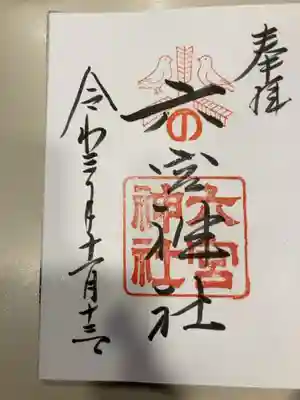 奉拝
六の宮神社
六宮
神社
令和三年十一月十三日